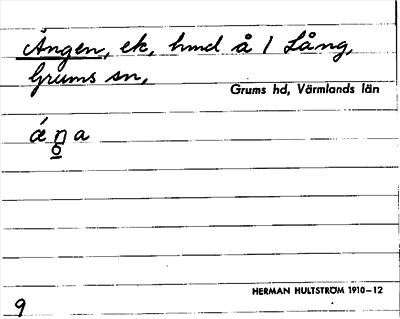 Ängen, ek, hmd å 1 Lång,
Grums sn,
Grums hd, Värmlands län
ǽṇa
HERMAN HULTSTRÖM 1910–12
9